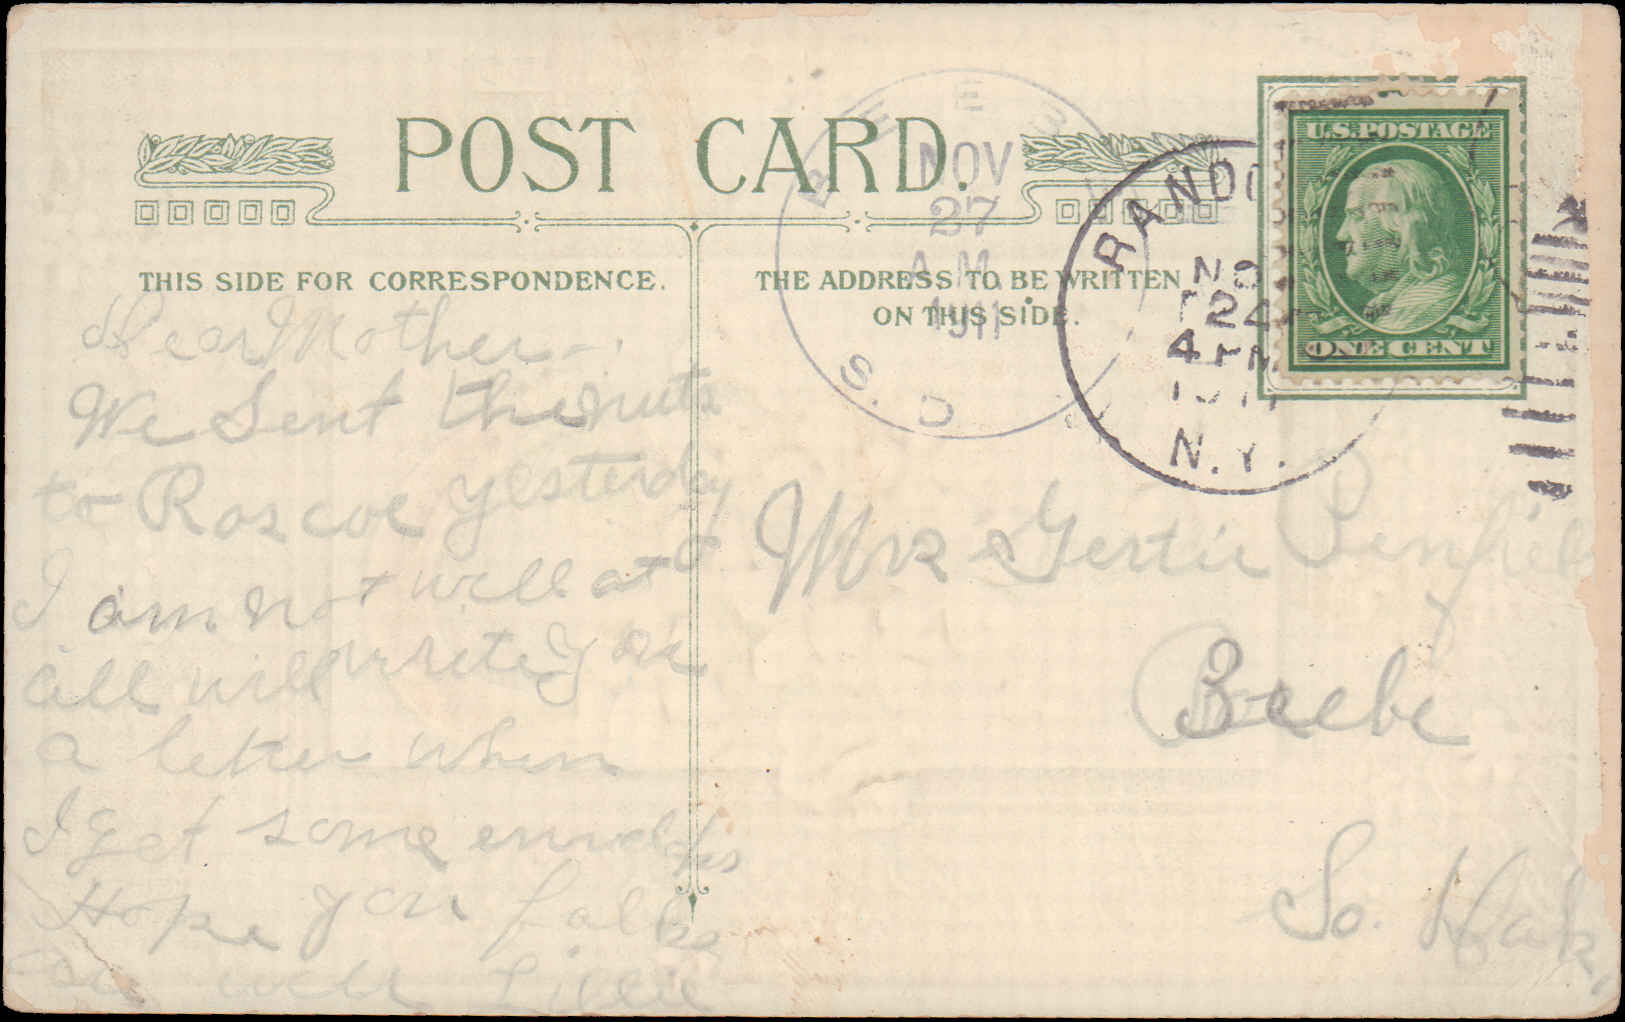 POST CARD.
THIS SIDE FOR CORRESPONDENCE.
THE ADDRESS TO BE WRITTEN
ON THIS SIDE.
BEEBE
NOV
27
A.M.
1911
S. D.
RANDO
NO
24
4 PM
1911
N.Y.
U.S. POSTAGE
ONE CENT
Dear Mother
We Sent the nuts
to Roscoe yesterday
I am not well at
all will write you
a letter when
I get some envelopes
Hope you folks
are well Lillie
Mrs Gertie Penfield
Beebe
So. Dak.